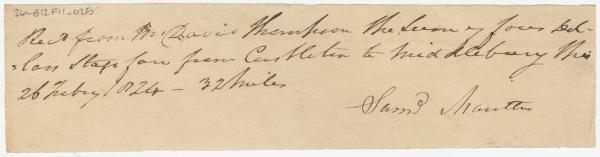 26-B12F11-025
Recd from Mr David Thompson the Sum of four Dol-
-lars Stage fare from Castleton to Middlebury this
26 Febry 1824 - 32 Miles
Saml